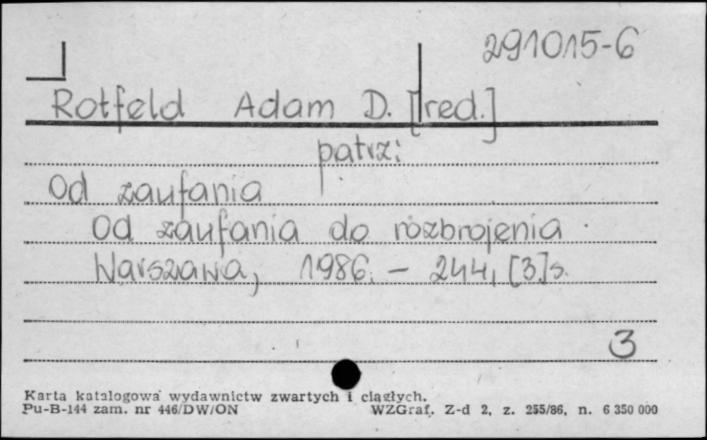 291015-6
Rotfeld Adam D. [red.]
patrz:
Od zaufania
Od zaufania do rozbrojenia.
Warszawa, 1986. – 244, [3]s.
3
Karta katalogowa wydawnictw zwartych i ciągłych.
Pu-B-144 zam. nr 446/DW/ON WZGraf. Z-d 2, z. 255/86, n. 6 350 000